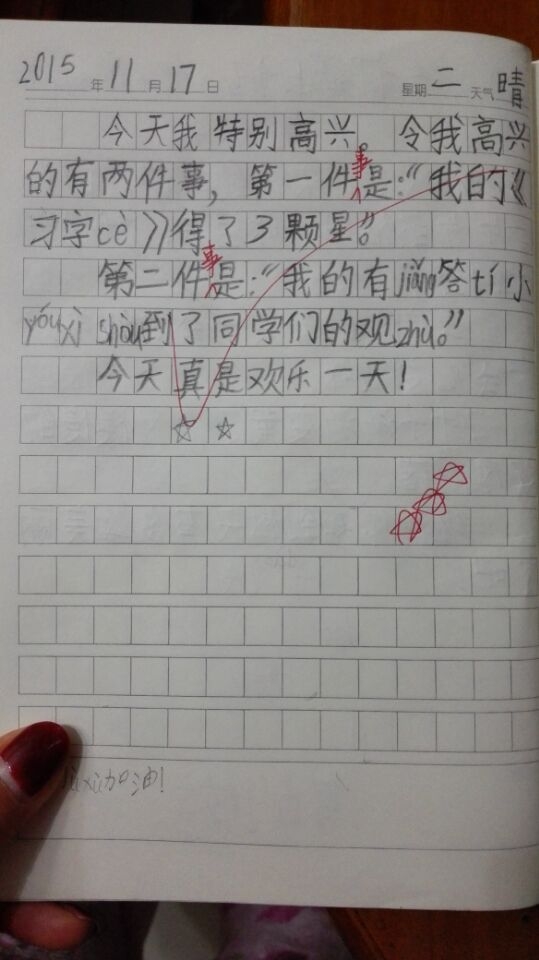 2015年11月17日 星期二 天气晴
今天我特别高兴。令我高兴
的有两件事，第一件事是：“我的《
习字cè》得了3颗星。”
第二件事是：“我的有jiǎng答tí小
yóuxì shòu到了同学们的观zhù。”
今天真是欢乐一天！
☆ ☆
jìxù加油！